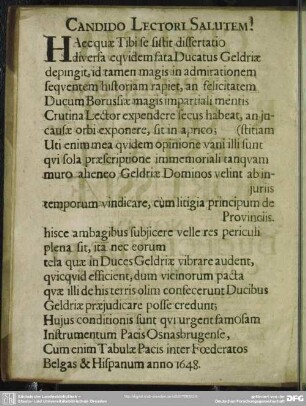 CANDIDO LECTORI SALUTEM!
HAec quæ Tibi se sistit dissertatio
diversa eqvidem fata Ducatus Geldriæ
depingit, id tamen magis in admirationem
seqventem historiam rapiet, an felicitatem
Ducum Borussiæ magis impartiali mentis
Crutina Lector expendere secus habeat, an ju-
causæ orbi exponere, sit in aprico; (stitiam
Uti enim mea qvidem opinione vani illi sunt
qvi sola præscriptione immemoriali tanqvam
muro aheneo Geldriæ Dominos velint ab in-
juriis
temporum vindicare, cum litigia principum de
Provinciis.
hisce ambagibus subjicere velle res periculi
plena sit, ita nec eorum
tela quæ in Duces Geldriæ vibrare audent,
qvicqvid efficient, dum vicinorum pacta
qvæ illi de his terris olim consecerunt Ducibus
Geldriæ præjudicare posse credunt;
Hujus conditionis sunt qvi urgent famosam
Instrumentum Pacis Osnabrugense,
Cum enim Tabulæ Pacis inter Fœderatos
Belgas & Hispanum anno 1648.